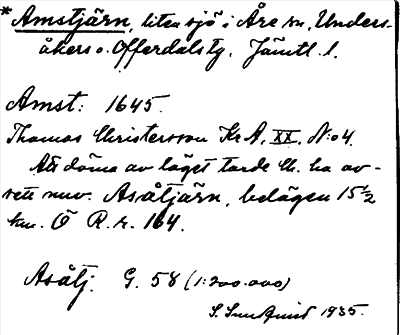 * Amstjärn, liten sjö i Åre sn, Unders-
åkers o. Offerdals tg. Jämtl. l.
Amst: 1645.
Thomas Christersson KrA. XX. N:o 4.
Att döma av läget torde Ch. ha av-
sett nuv. Asåtjärn, belägen 15 1/2
km. Ö R.r. 164.
Asåtj. G. 58 (1:200.000)
S. Sundquist 1935.